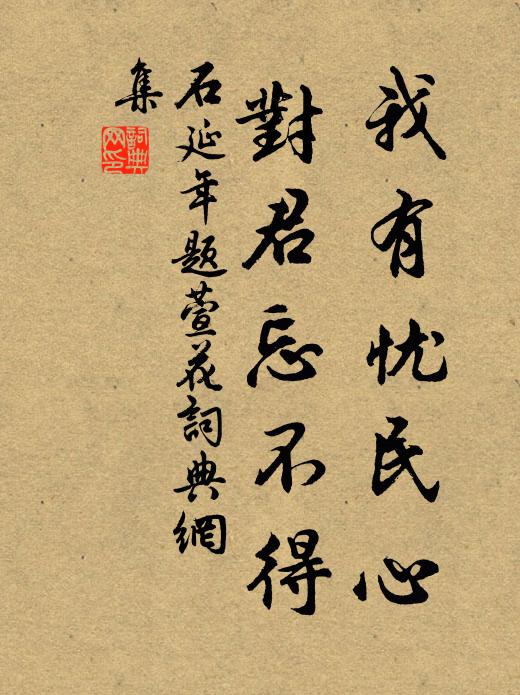 我有忧民心
對君忘不得
石延年题萱花詞典網
集
詞典
网印